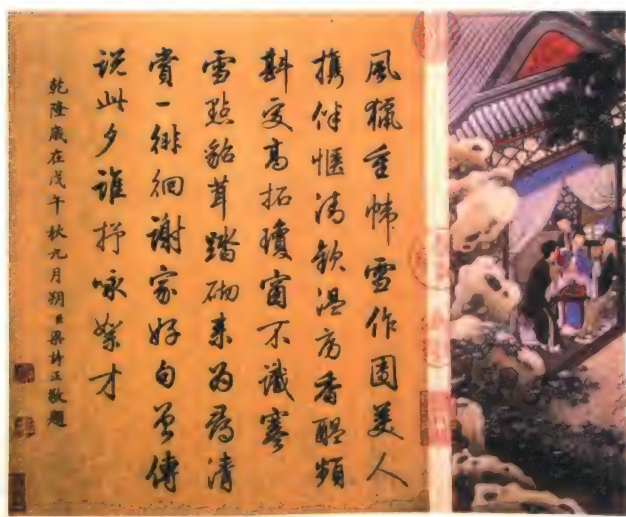 風獵重幃雪作團美人
携伴愜清歡温房香醖頻
斟高拓瓊窗不識寒
雪點貂茸踏砌来為尋清
賞一徘徊謝家好句曾傳
說此夕誰抒咏絮才
乾隆歲在戊午秋九月朔臣梁詩正敬題